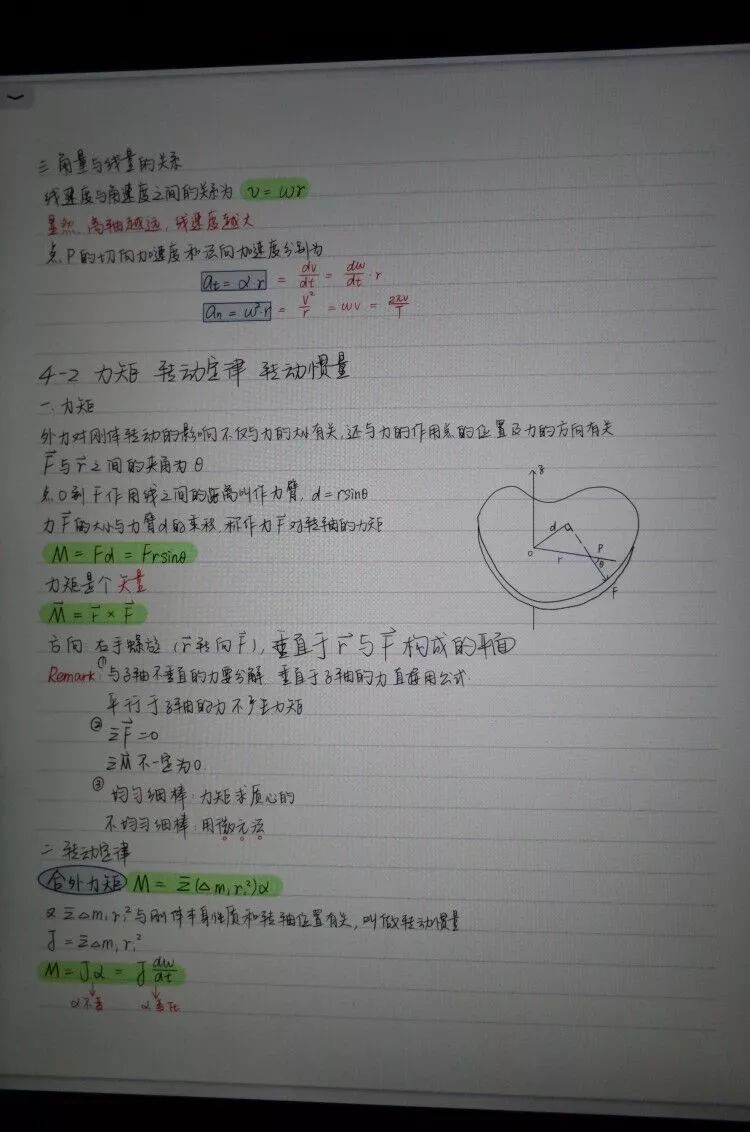 三 角量与线量的关系
线速度与角速度之间的关系为 v = ωr
显然, 离轴越远, 线速度越大
点P的切向加速度和法向加速度分别为
at = α·r = dv/dt = dω/dt · r
an = ω²·r = v²/r = ωv = 2πv/T
4-2 力矩 转动定律 转动惯量
一. 力矩
外力对刚体转动的影响不仅与力的大小有关, 还与力的作用点的位置及力的方向有关
F⃗与r⃗之间的夹角为θ
点O到F作用线之间的距离叫作力臂, d = rsinθ
力F⃗的大小与力臂d的乘积, 称作力F⃗对转轴的力矩
M = Fd = Frsinθ
力矩是个 矢量
M⃗ = r⃗ × F⃗
方向 右手螺旋 (r⃗转向F⃗), 垂直于r⃗与F⃗构成的平面
Remark ① 与z轴不垂直的力要分解 垂直于z轴的力直接用公式
平行于z轴的力不产生力矩
② ΣF⃗ = 0
ΣM⃗ 不一定为0.
③ 均匀细棒: 力矩求质心的
不均匀细棒: 用微元法
二 转动定律
合外力矩 M = Σ(Δmi ri²)α
Σ Δmi ri² 与刚体本身性质和转轴位置有关, 叫做转动惯量
J = ΣΔmi ri²
M = Jα = J dω/dt
α不变 α变化
z
d
O
r
P
θ
F